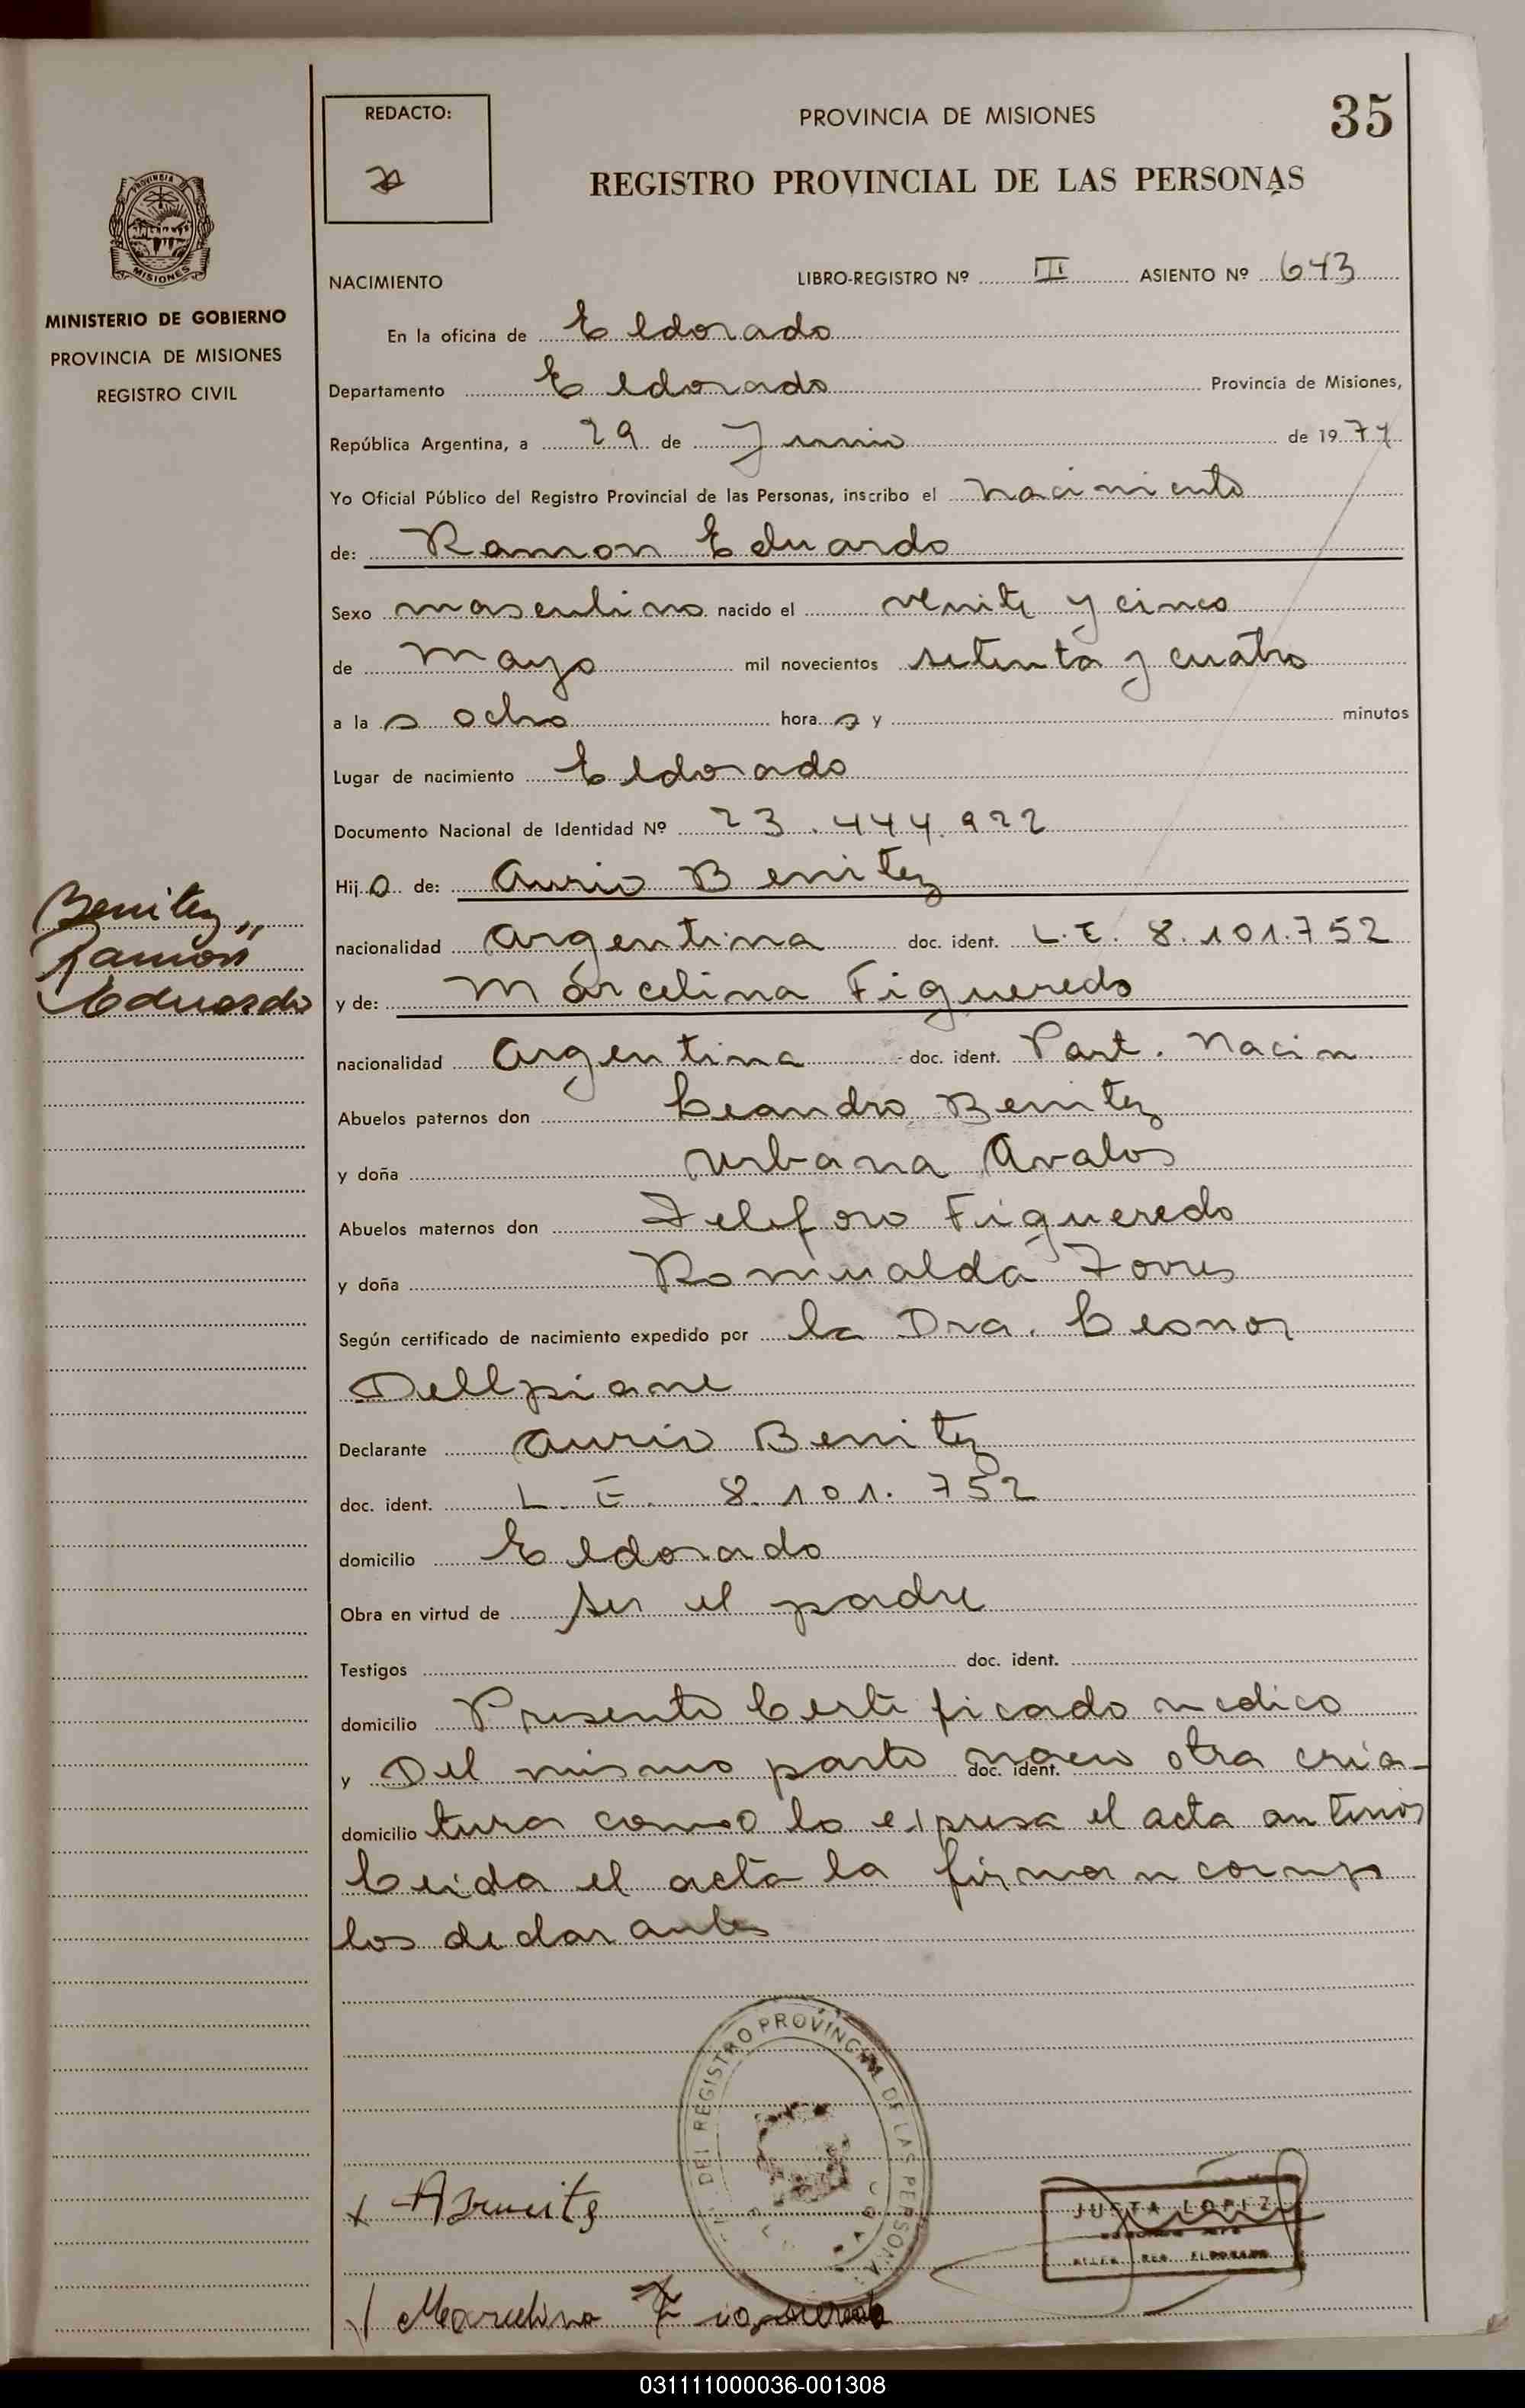 REDACTO:
PROVINCIA DE MISIONES
35
REGISTRO PROVINCIAL DE LAS PERSONAS
PROVINCIA
MISIONES
MINISTERIO DE GOBIERNO
PROVINCIA DE MISIONES
REGISTRO CIVIL
NACIMIENTO LIBRO-REGISTRO Nº III ASIENTO Nº 643
En la oficina de Eldorado
Departamento Eldorado Provincia de Misiones,
República Argentina, a 29 de Junio de 1974
Yo Oficial Público del Registro Provincial de las Personas, inscribo el nacimiento
de: Ramon Eduardo
Sexo masculino nacido el venite y cinco
de mayo mil novecientos setenta y cuatro
a la s ocho hora s y minutos
Lugar de nacimiento Eldorado
Documento Nacional de Identidad Nº 23.444.922
Hij o de: Aurio Benitez
Benitez,,
Ramón
Eduardo
nacionalidad Argentina doc. ident. L.E. 8.101.752
y de: Marcelina Figueredo
nacionalidad Argentina doc. ident. Part. Nacim
Abuelos paternos don Leandro Benitez
y doña Urbana Avalos
Abuelos maternos don Teleforo Figueredo
y doña Romualda Torres
Según certificado de nacimiento expedido por la Dra. Leonor
Dellpiane
Declarante Aurio Benitez
doc. ident. L.E. 8.101.752
domicilio Eldorado
Obra en virtud de ser el padre
Testigos doc. ident.
domicilio Presento Certificado medico
y Del mismo parto nacio otra cria- doc. ident.
domicilio tura como lo expresa el acta anterior
Leida el acta la firman comp
los declarantes
DEL REGISTRO PROVINCIAL DE LAS PERSONAS
JUSTA LOPEZ
ELDORADO
x ABenitez
x Marcelina Figueredo
031111000036-001308